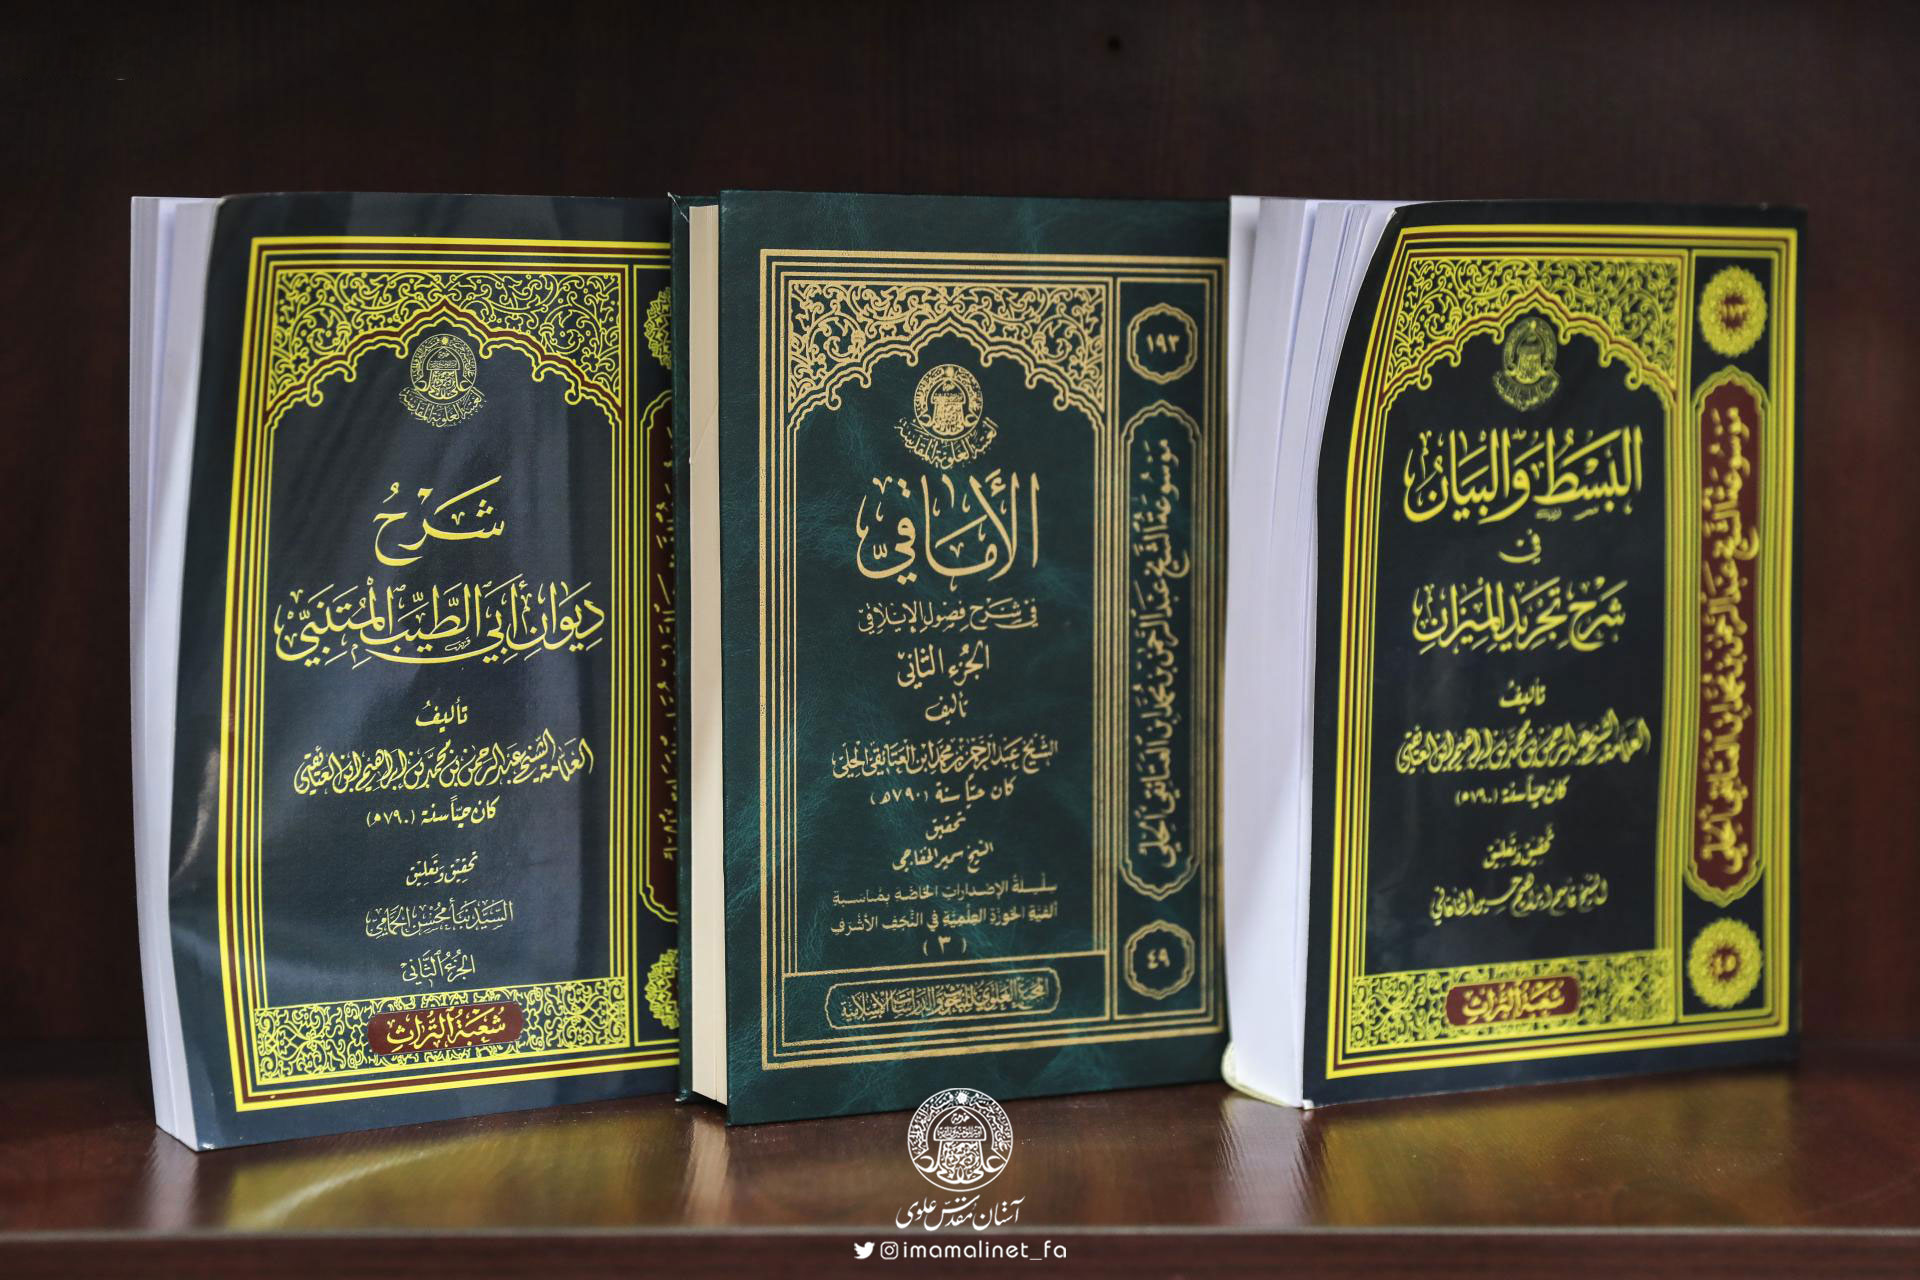 شرح
ديوان أبي الطيب المتنبي
تأليف
العلامة الشيخ عبد الرحمن بن محمد بن إبراهيم ابن العتائقي
كان حيّاً سنة (٧٩٠هـ)
تحقيق وتعليق
السيد نبأ محسن الحمامي
الجزء الثاني
شعبة التراث
العتبة العلوية المقدسة
الأماقي
في شرح فصول الإيلاقي
الجزء الثاني
تأليف
الشيخ عبد الرحمن بن محمد ابن العتائقي الحلي
كان حيّاً سنة (٧٩٠هـ)
تحقيق
الشيخ سمير الخفاجي
سلسلة الإصدارات الخاصة بمناسبة
ألفية الحوزة العلمية في النجف الأشرف
(٣)
١٩٣
موسوعة الشيخ عبد الرحمن بن محمد ابن العتائقي الحلي
٤٩
البسط والبيان
في
شرح تجريد الميزان
تأليف
العلامة الشيخ عبد الرحمن بن محمد بن إبراهيم ابن العتائقي
كان حيّاً سنة (٧٩٠هـ)
تحقيق وتعليق
الشيخ قاسم إبراهيم حسين الخاقاني
شعبة التراث
موسوعة الشيخ عبد الرحمن بن محمد ابن العتائقي الحلي
آستان مقدس علوی
imamalinet_fa